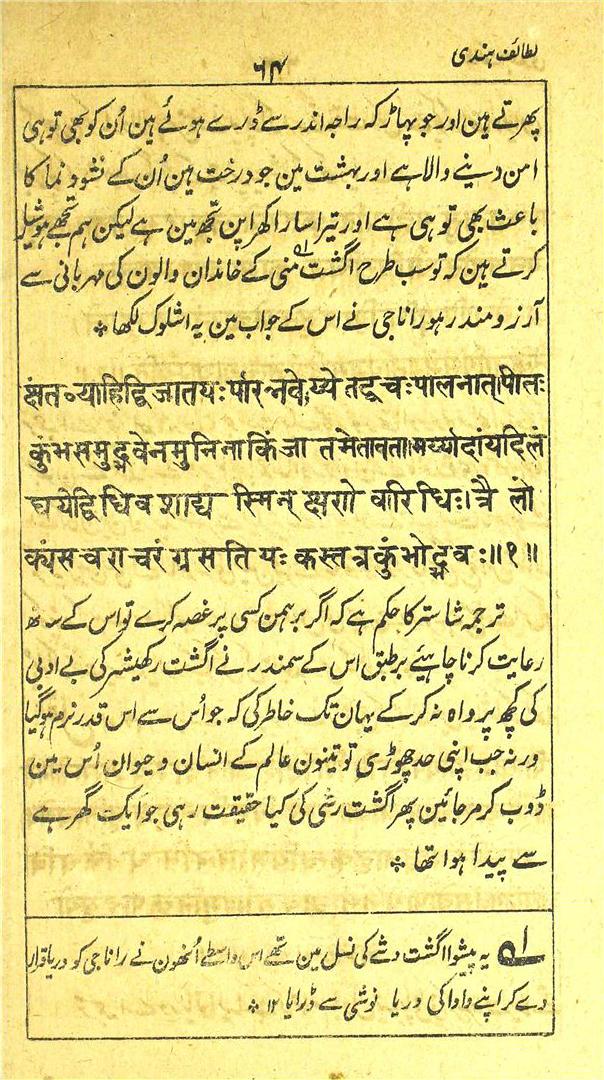 لطائف ہندی
۶۴
پھرتے ہین اور جو پہاڑ کہ راجہ اندر سے ڈرے ہوئے ہین اُن کو بھی تو ہی
امن دینے والا ہے اور بہشت مین جو درخت ہین اُن کے نشو و نما کا
باعث بھی تو ہی ہے اور تیرا سارا کھراپن تجھ مین ہے لیکن ہم تجھے ہوشیار
کرتے ہین کہ تو سب طرح اگشت منی کے خاندان والون کی مہربانی سے
آرزو مند رہو رانا جی نے اس کے جواب مین یہ اشلوک لکھا *
क्षंतव्याहिद्विजातयः पालनात् पीतः
कुंभसमुद्भवेनमुनिनाकिंजातमेतावता॥मर्य्यादांयदिलं
घयेद्विधिवशाद्यस्मिन् क्षणे वारिधिः।त्रैलो
क्यंसचराचरंग्रसतियः कस्तत्रकुंभोद्भवः॥१॥
ترجمہ شاستر کا حکم ہے کہ اگر برہمن کسی پر غصہ کرے تو اس کے ساتھ
رعایت کرنا چاہیئے برطبق اس کے سمندر نے اگشت رکھیشر کی بے ادبی
کی کچھ پرواہ نہ کر کے یہان تک خاطر کی کہ جو اُس سے اس قدر نرم ہو گیا
ورنہ جب اپنی حد چھوڑی تو تینون عالم کے انسان و حیوان اُس مین
ڈوب کر مر جائین پھر اگشت رشی کی کیا حقیقت رہی جو ایک گھرے
سے پیدا ہوا تھا *
۱ہ یہ پیشوا اگشت کی نسل مین تھے اس واسطے اُنھون نے رانا جی کو دریا قرار
دے کر اپنے دادا کی دریا نوشی سے ڈرایا ۱۲ *